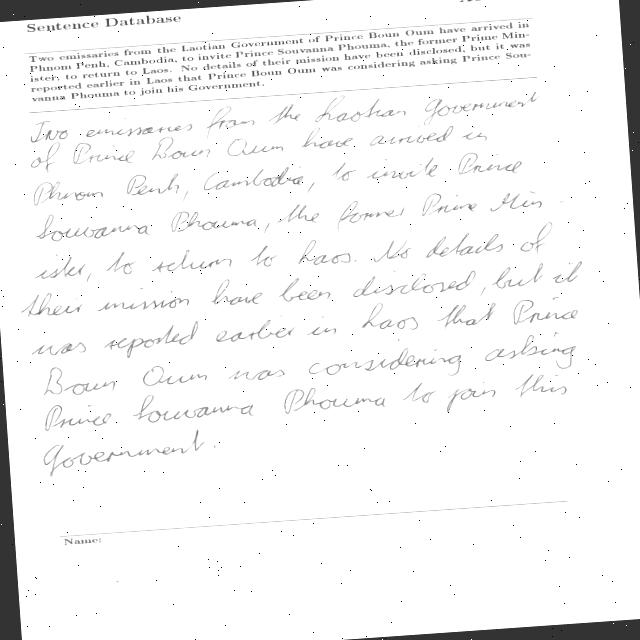 Sentence Database
Two emissaries from the Laotian Government of Prince Boun Oum have arrived in
Phnom Penh, Cambodia, to invite Prince Souvanna Phouma, the former Prime Min-
ister, to return to Laos. No details of their mission have been disclosed, but it was
reported earlier in Laos that Prince Boun Oum was considering asking Prince Sou-
vanna Phouma to join his Government.
Two emissaries from the Laotian Government
of Prince Boun Oum have arrived in
Phnom Penh, Cambodia, to invite Prince
Souvanna Phouma, the former Prime Min
ister, to return to Laos. No details of
their mission have been disclosed, but it
was reported earlier in Laos that Prince
Boun Oum was considering asking
Prince Souvanna Phouma to join this
Government.
Name: